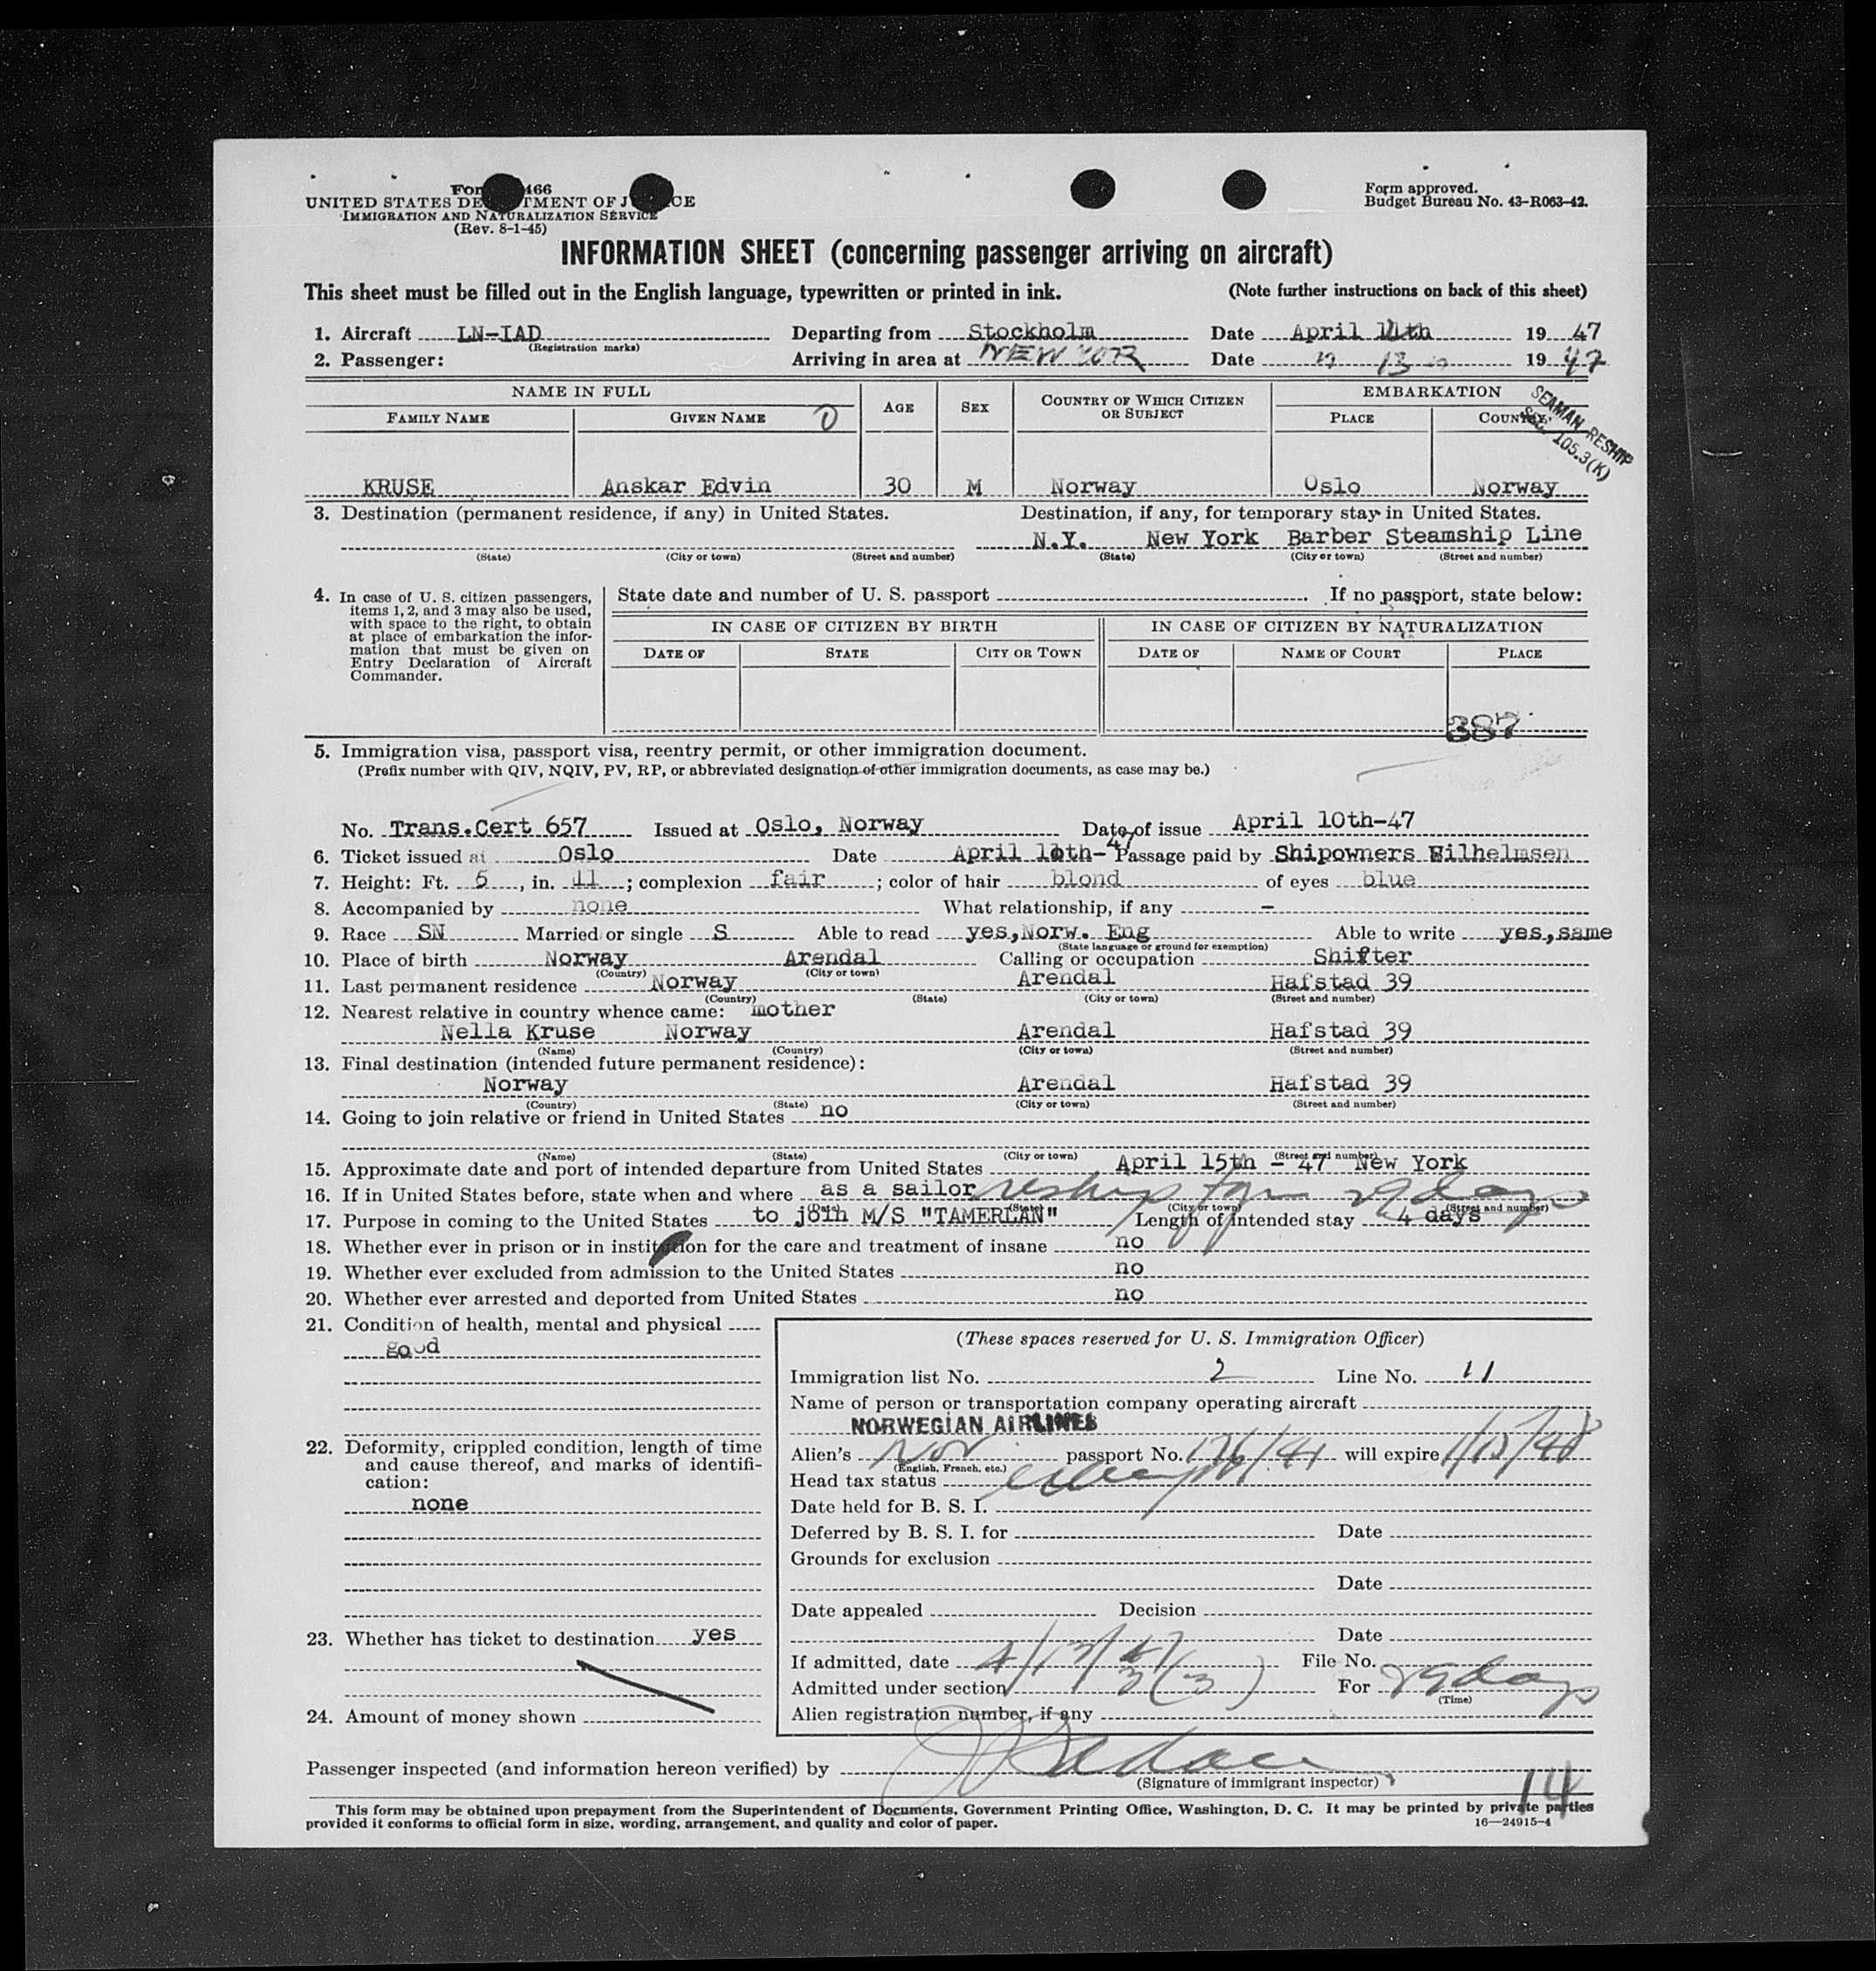 UNITED STATES DEPARTMENT OF JUSTICE
IMMIGRATION AND NATURALIZATION SERVICE
(Rev. 8-1-45)
Form approved.
Budget Bureau No. 43-R063-42.
INFORMATION SHEET (concerning passenger arriving on aircraft)
This sheet must be filled out in the English language, typewritten or printed in ink. (Note further instructions on back of this sheet)
1. Aircraft LN-IAD Departing from Stockholm Date April 19 47
(Registration marks)
2. Passenger: Arriving in area at NEW YOR Date " 13 " 19 47
NAME IN FULL AGE SEX COUNTRY OF WHICH CITIZEN OR SUBJECT EMBARKATION
FAMILY NAME GIVEN NAME PLACE COUNTRY
SEAMAN RESHIP
SEC. 105.3(K)
KRUSE Anskar Edvin 30 M Norway Oslo Norway
3. Destination (permanent residence, if any) in United States. Destination, if any, for temporary stay in United States.
N.Y. New York Barber Steamship Line
(State) (City or town) (Street and number) (State) (City or town) (Street and number)
4. In case of U. S. citizen passengers, items 1, 2, and 3 may also be used, with space to the right, to obtain at place of embarkation the information that must be given on Entry Declaration of Aircraft Commander.
State date and number of U. S. passport . If no passport, state below:
IN CASE OF CITIZEN BY BIRTH IN CASE OF CITIZEN BY NATURALIZATION
DATE OF STATE CITY OR TOWN DATE OF NAME OF COURT PLACE
387
5. Immigration visa, passport visa, reentry permit, or other immigration document.
(Prefix number with QIV, NQIV, PV, RP, or abbreviated designation of other immigration documents, as case may be.)
No. Trans.Cert 657 Issued at Oslo, Norway Date of issue April 10th-47
6. Ticket issued at Oslo Date April -47 Passage paid by Shipowners Wilhelmsen
7. Height: Ft. 5, in. 11; complexion fair; color of hair blond of eyes blue
8. Accompanied by none What relationship, if any -
9. Race SN Married or single S Able to read yes,Norw. Eng Able to write yes,same
(State language or ground for exemption)
10. Place of birth Norway Arendal Calling or occupation Shifter
(Country) (City or town)
11. Last permanent residence Norway Arendal Hafstad 39
(Country) (State) (City or town) (Street and number)
12. Nearest relative in country whence came: mother
Nella Kruse Norway Arendal Hafstad 39
(Name) (Country) (City or town) (Street and number)
13. Final destination (intended future permanent residence):
Norway Arendal Hafstad 39
(Country) (State) (City or town) (Street and number)
14. Going to join relative or friend in United States no
(Name) (State) (City or town) (Street and number)
15. Approximate date and port of intended departure from United States April 15th - 47 New York
16. If in United States before, state when and where as a sailor reship fgn 29 days
(Date) (State) (City or town) (Street and number)
17. Purpose in coming to the United States to join M/S "TAMERLAN" Length of intended stay 4 days
18. Whether ever in prison or in institution for the care and treatment of insane no
19. Whether ever excluded from admission to the United States no
20. Whether ever arrested and deported from United States no
21. Condition of health, mental and physical
good
22. Deformity, crippled condition, length of time and cause thereof, and marks of identification:
none
23. Whether has ticket to destination yes
24. Amount of money shown
(These spaces reserved for U. S. Immigration Officer)
Immigration list No. 2 Line No. 11
Name of person or transportation company operating aircraft
NORWEGIAN AIRLINES
Alien's Nor passport No. will expire
(English, French, etc.)
Head tax status
Date held for B. S. I.
Deferred by B. S. I. for Date
Grounds for exclusion
Date
Date appealed Decision
Date
If admitted, date 4/13/47 File No.
Admitted under section 3(3) For 29 days
(Time)
Alien registration number, if any
Passenger inspected (and information hereon verified) by
(Signature of immigrant inspector)
14
This form may be obtained upon prepayment from the Superintendent of Documents, Government Printing Office, Washington, D. C. It may be printed by private parties
provided it conforms to official form in size, wording, arrangement, and quality and color of paper. 16—24915-4